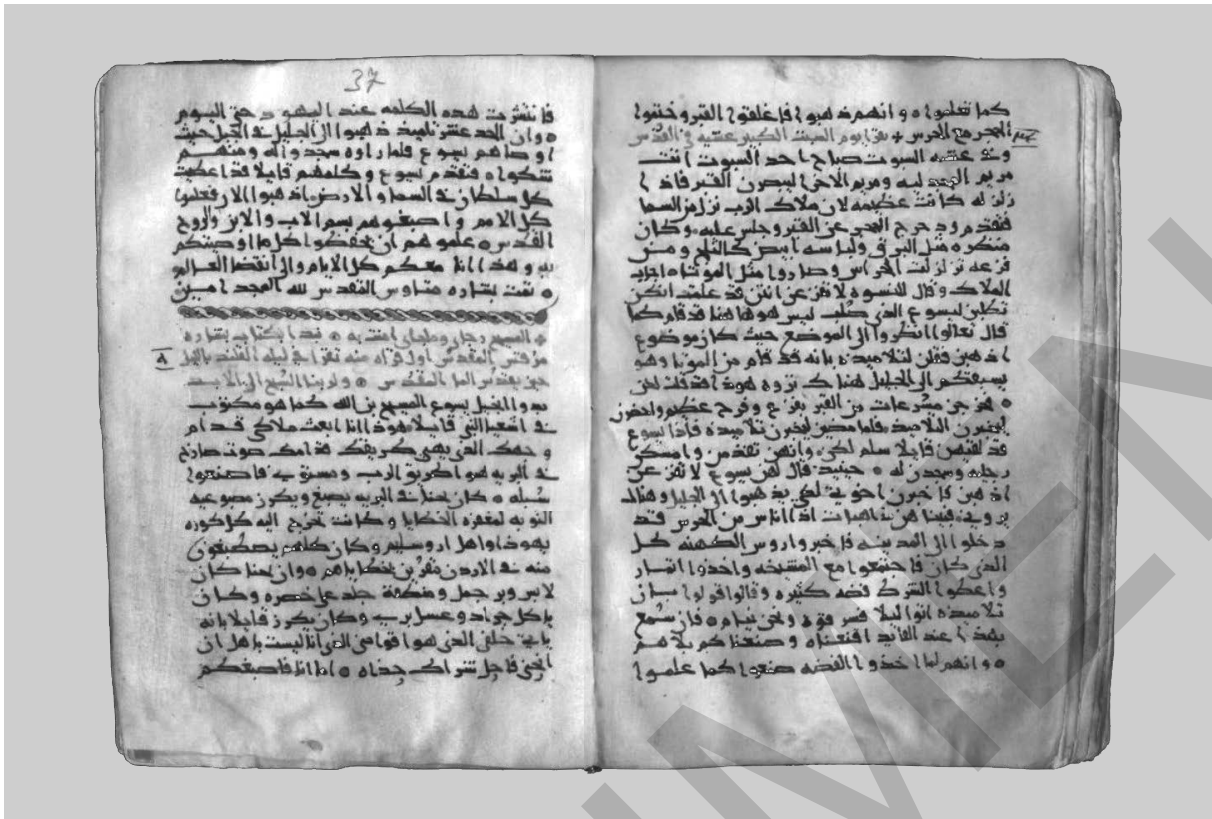 كما تعلموا ٥ وانهم ذهبوا فاغلقوا القبر وختموا
الحجر مع الحرس + يقرا يوم السبت الكبير عشيه في القدس
وفي عشيه السبوت صباح احد السبوت اتت
مريم المجدليه ومريم الاخرا لينضرن القبر فاذا
زلزله كانت عظيمه لان ملاك الرب نزل من السما
فتقدم ودحرج الحجر عن القبر وجلس عليه وكان
منظره مثل البرق ولباسه ابيض كالثلج ومن
فزعه تزلزلت الحراس وصاروا مثل الموتا ٥ اجاب
الملاك وقال للنسوه لا تفزعن انتن قد علمت انكن
تطلبن ليسوع الذي صُلب ليس هو هاهنا قد قام كما
قال تعالوا انظروا الى الموضع حيث كان موضوع
اذهبن فقلن لتلاميذه بانه قد قام من الموتا وهو
يسبقكم الى الجليل هناك ترونه هوذا قد قلت لكن
٥ فخرجن مسرعات من القبر بفزع وفرح عظيم واحضرن
ليخبرن التلاميذ فلما مضين ليخبرن تلاميذه فاذا يسوع
قد لقيهن قايلا سلم لكن وانهن تقدمن وامسكن
رجليه وسجدن له ٥ حينيذ قال لهن يسوع لا تفزعن
اذهبن فاخبرن اخوتي لكي يذهبوا الى الجليل وهناك
يروني فبينا هن ذاهبات اذا اناس من الحرس قد
دخلوا الى المدينه فاخبروا روس الكهنه كل
الذي كان فاجتمعوا مع المشيخه واخذوا اشار
واعطوا الشرط فضه كثيره وقالوا قولوا بان
تلاميذه اتوا ليلا فسرقوه ونحن نيام ٥ فان سُمع
بهذا عند القايد اقنعناه وصنعناكم بلا هم
٥ وانهم لما اخذوا الفضه صنعوا كما علموا
37
فانتشرت هذه الكلمه عند اليهود حتى اليوم
٥ وان الاحد عشر تلميذ ذهبوا الى الجليل في الجبل حيث
اوصاهم يسوع فلما راوه سجدوا له ومنهم
شكوا ٥ فتقدم يسوع وكلمهم قايلا قد اعطيت
كل سلطان في السما والارض اذهبوا الان فعلموا
كل الامم واصبغوهم بسم الاب والابن والروح
القدس ٥ علموهم ان يحفظوا كل ما اوصيتكم
به وهذا انا معكم كل الايام والى انقضا العالم
٥ تمت بشاره متاوس المقدس لله المجد امين
٥ المسيح رجاي وملجاي امنت به ٥ نبدا بكتاب بشاره
مرقس المقدس اول قراه منه تقرا في ليله القلند بالليل
حين يقدس الما المقدس ٥ ولربنا السُبح الى الابد
بدو انجيل يسوع المسيح بن الله كما هو مكتوب
في اشعيا النبي قايلا هوذا انا ابعث ملاكي قدام
وجهك الذي يهيى طريقك قدامك صوت صارخ
في البريه هيوا طريق الرب ومستويه فاصنعوا
سُبله ٥ كان يحنا في البريه يصبغ ويكرز مصبوغيه
التوبه لمغفره الخطايا وكانت تخرج اليه كل كوره
يهوذا واهل اروسليم وكان كلهم يصطبغون
منه في الاردن مقرين بخطاياهم ٥ وان يحنا كان
لابس وبر جمل ومنطقة جلد على خصره وكان
ياكل جراد وعسل برب وكان يكرز قايلا بانه
ياتي خلفي الذي هو اقوا مني الذي انا ليست باهل ان
انحني فاحل شراك حذاه ٥ اما انا فاصبغكم